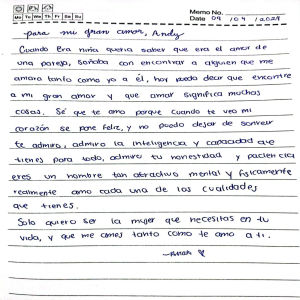 Memo No.
Mo Tu We Th Fr Sa Su
Date 09 / 04 / 2024
para mi gran amor, Andy
Cuando Era niña quería saber que era el amor de
una pareja, soñaba con encontrar a alguien que me
amara tanto como yo a él, hoy puedo decir que encontre
a mi gran amor y que amar significa muchas
cosas. Sé que te amo porque cuando te veo mi
corazón se pone feliz, y no puedo dejar de sonreir
te admiro, admiro la inteligencia y capacidad que
tienes para todo, admiro tu honestidad y paciencia
eres un hombre tan atractivo mental y fisicamente
realmente amo cada una de las cualidades
que tienes.
Solo quiero ser la mujer que necesitas en tu
vida, y que me ames tanto como te amo a ti.